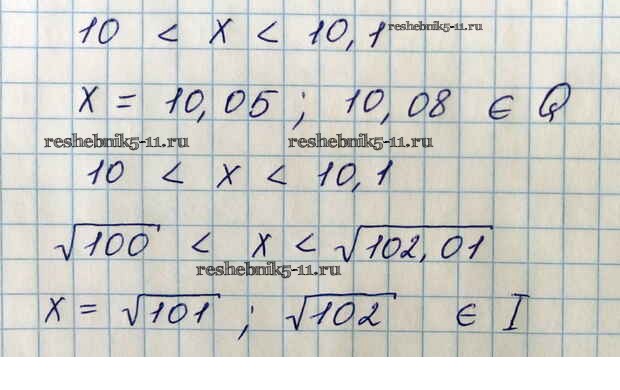 10 < x < 10,1 reshebnik5-11.ru
x = 10,05 ; 10,08 ∈ Q
reshebnik5-11.ru reshebnik5-11.ru
10 < x < 10,1
√100 < x < √102,01
reshebnik5-11.ru
x = √101 ; √102 ∈ I